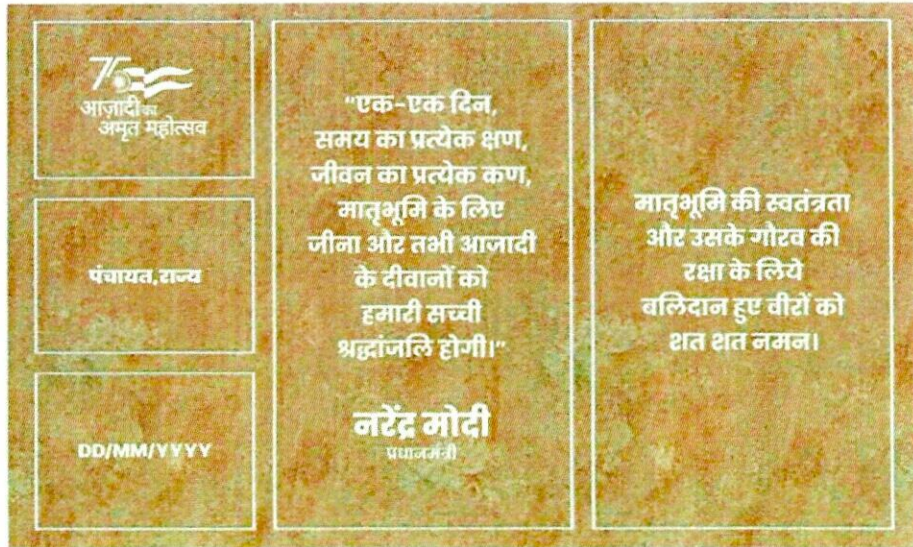 75
आज़ादी का
अमृत महोत्सव
पंचायत,राज्य
DD/MM/YYYY
"एक-एक दिन,
समय का प्रत्येक क्षण,
जीवन का प्रत्येक कण,
मातृभूमि के लिए
जीना और तभी आजादी
के दीवानों को
हमारी सच्ची
श्रद्धांजलि होगी।"
नरेंद्र मोदी
प्रधानमंत्री
मातृभूमि की स्वतंत्रता
और उसके गौरव की
रक्षा के लिये
बलिदान हुए वीरों को
शत शत नमन।